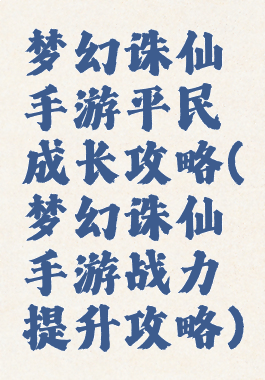 梦幻诛仙
手游平民
成长攻略(
梦幻诛仙
手游战力
提升攻略)